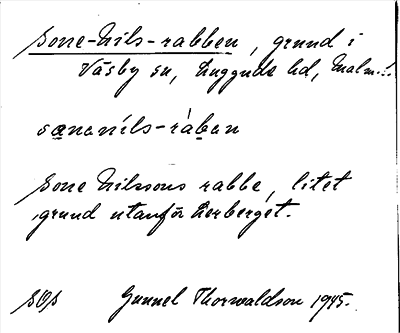 Sone-Nils-rabben, grund i
Väsby sn, Luggude hd, Malm.
sånanils-rában
Sone Nilssons rabbe, litet
grund utanför Lerberget.
SOS Gunnel Thorwaldson 1945.